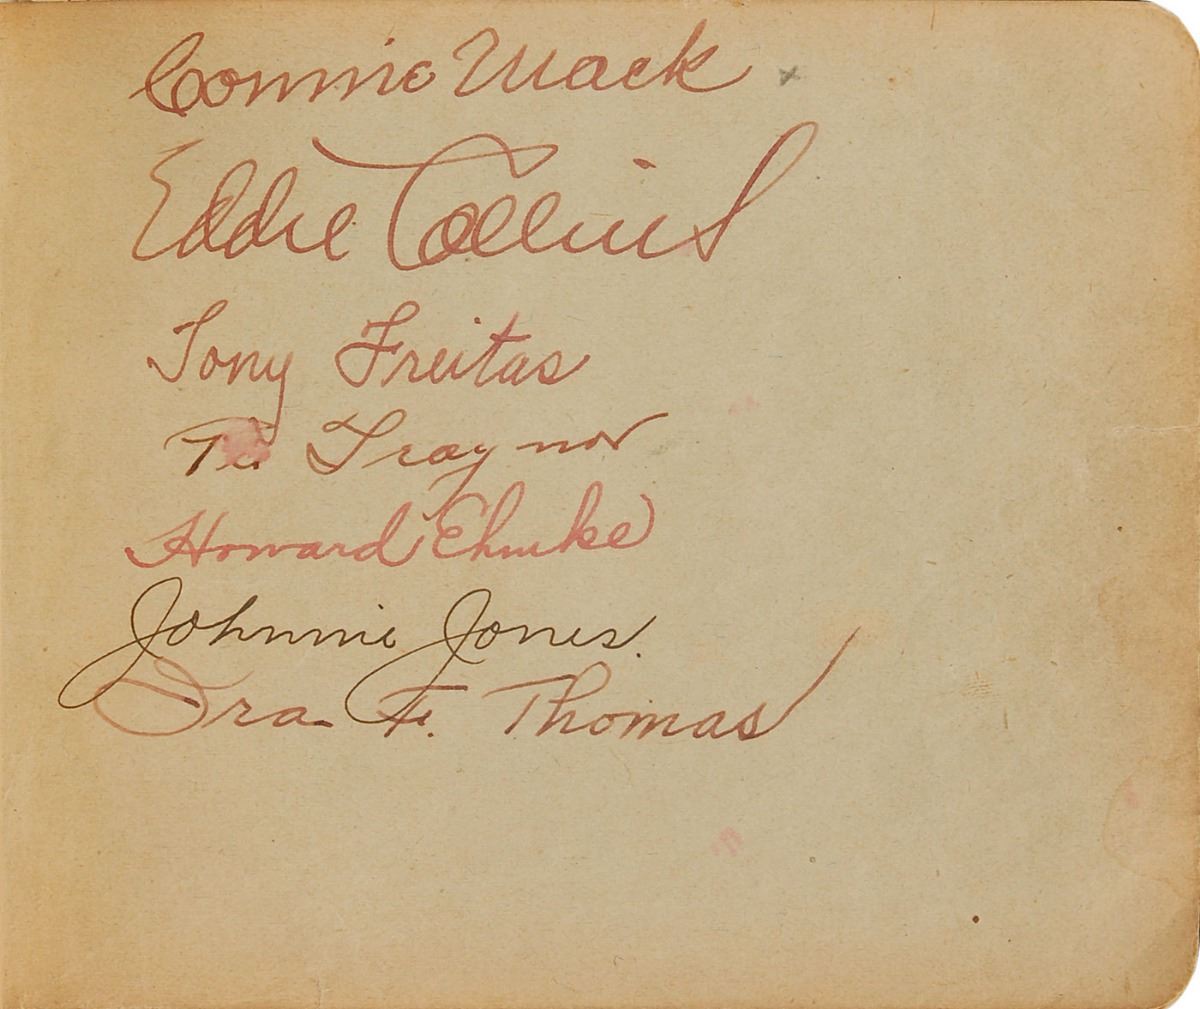 Connie Mack x
Eddie Collins
Tony Freitas
Traynor
Howard Ehmke
Johnnie Jones.
Ira F. Thomas